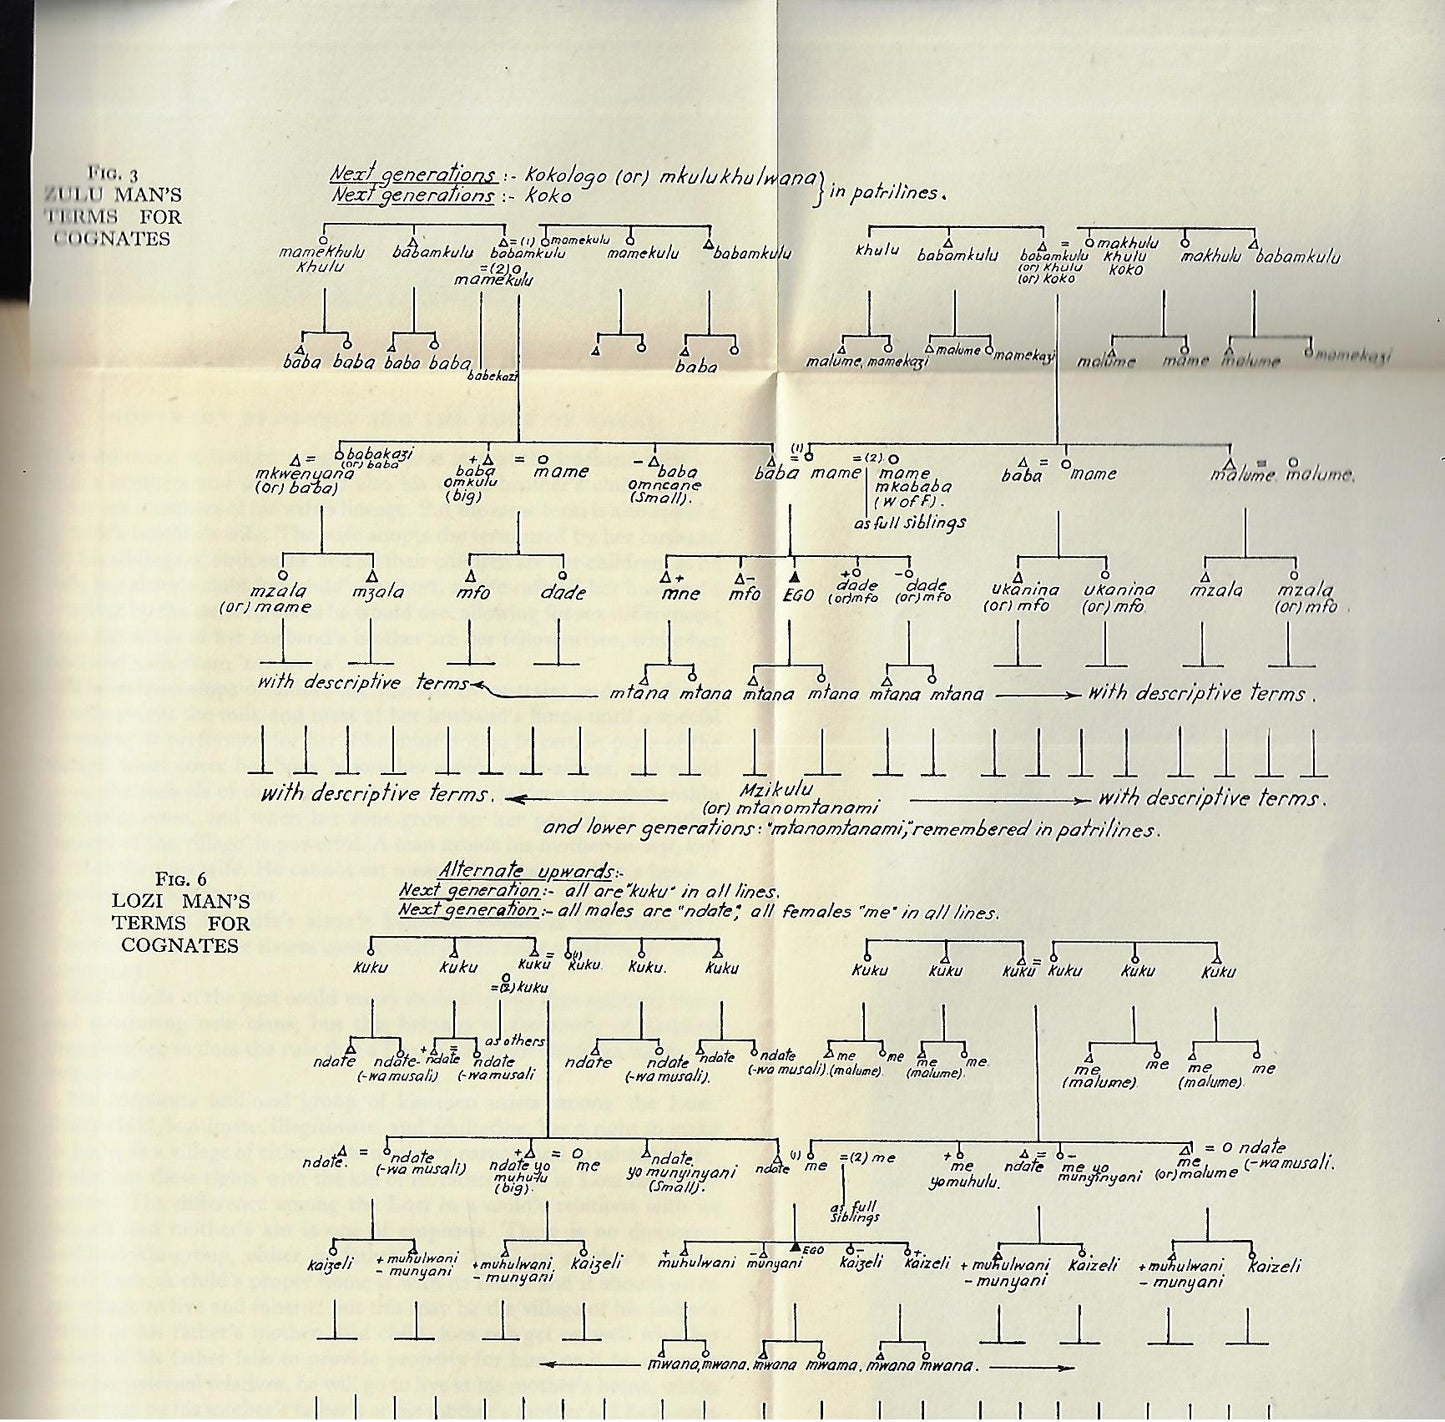 FIG. 3
ZULU MAN'S
TERMS FOR
COGNATES
Next generations :- Kokologo (or) mkulukhulwana
Next generations :- koko
} in patrilines.
mamekhulu babamkulu = (1) mamekulu mamekulu babamkulu khulu babamkulu = makhulu makhulu babamkulu
khulu babamkulu babamkulu khulu
= (2) (or) khulu koko
mamekulu (or) koko
baba baba baba baba babekazi baba malume, mamekazi malume mamekazi malume mame malume mamekazi
= babakazi + = - (1) = (2) = =
mkwenyana (or) baba baba mame baba baba mame mame baba mame malume. malume.
(or) baba) omkulu omncane mkababa
(big) (small). (W of F).
as full siblings
mzala mzala mfo dade + mne - mfo EGO + dade - dade ukanina ukanina mzala mzala
(or) mame (or) mfo (or) mfo (or) mfo (or) mfo. (or) mfo.
with descriptive terms mtana mtana mtana mtana mtana mtana with descriptive terms.
with descriptive terms. Mzikulu with descriptive terms.
(or) mtanomtanami
and lower generations: "mtanomtanami," remembered in patrilines.
FIG. 6
LOZI MAN'S
TERMS FOR
COGNATES
Alternate upwards:-
Next generation:- all are "kuku" in all lines.
Next generation:- all males are "ndate", all females "me" in all lines.
kuku kuku kuku = (1) kuku. kuku. kuku kuku kuku kuku = kuku kuku kuku
= (2) kuku
as others
ndate ndate- + ndate = ndate ndate ndate ndate ndate me me me me me me me me
(-wa musali) (-wa musali) (-wa musali). (-wa musali). (malume) (malume). (malume). (malume).
ndate. = ndate + ndate yo = me ndate. ndate (1) me = (2) me + me ndate = - me yo me = ndate
(-wa musali) muhulu yo munyinyani yomuhulu. munyinyani (or) malume (-wa musali.
(big). (small).
as full
siblings
kaizeli + muhulwani + muhulwani. kaizeli + muhulwani - munyani EGO - kaizeli + kaizeli + muhulwani kaizeli + muhulwani kaizeli
- munyani - munyani - munyani - munyani
mwana, mwana. mwana mwama. mwana mwana.